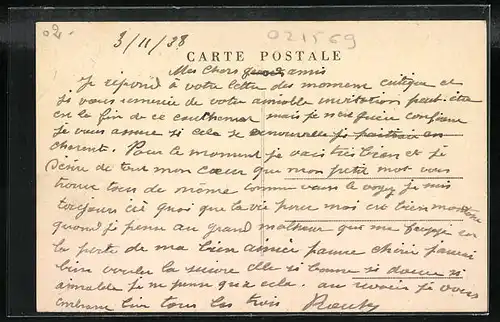 02.
3/11/38
021569
CARTE POSTALE
Mes chers amis
Je répond à votre lettre des moment critique et
je vous remercie de votre aimable invitation peut être
est la fin de ce cauchemar mais je n'ai guère confiance
je vous assure si cela se renouvelle je partirais en
charente. Pour le moment je vais très bien et je
désire de tout mon cœur que mon petit mot vous
trouve tous de même comme vous le voyez je suis
toujours ici quoi que la vie pour moi est bien monotone
quand je pense au grand malheur que me frappe
la perte de ma bien aimée pauvre chérie j'aurai
bien voulu la suivre elle si bonne si douce si
aimable je ne pense que cela. au revoir je vous
embrasse bien tous les trois